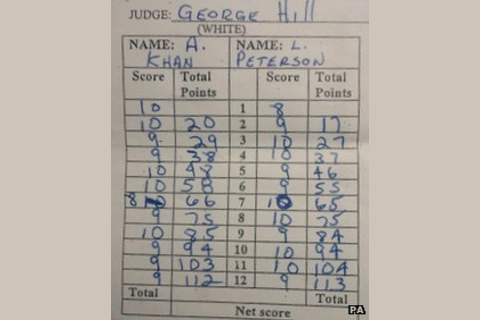 JUDGE: GEORGE Hill
(WHITE)
NAME: A. NAME: L.
KHAN PETERSON
Score Total Score Total
Points Points
10 1 8
10 20 2 9 17
9 29 3 10 27
9 38 4 10 37
10 48 5 9 46
10 58 6 9 55
8 66 7 10 65
9 75 8 10 75
10 85 9 9 84
9 94 10 10 94
9 103 11 10 104
9 112 12 9 113
Total Total
Net score
PA